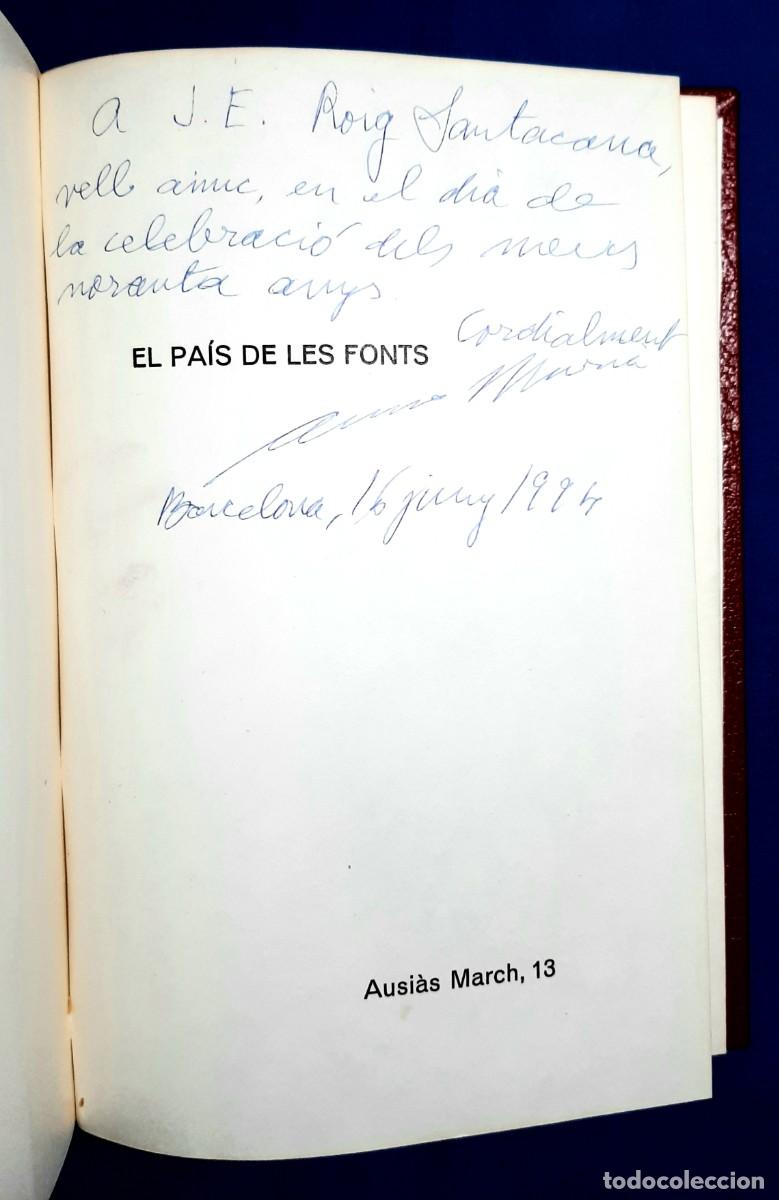 a J. E. Roig Santacana,
vell amic, en el dia de
la celebració dels meus
noranta anys.
Cordialment
EL PAÍS DE LES FONTS
Barcelona, 16 juny 1994
Ausiàs March, 13
todocoleccion